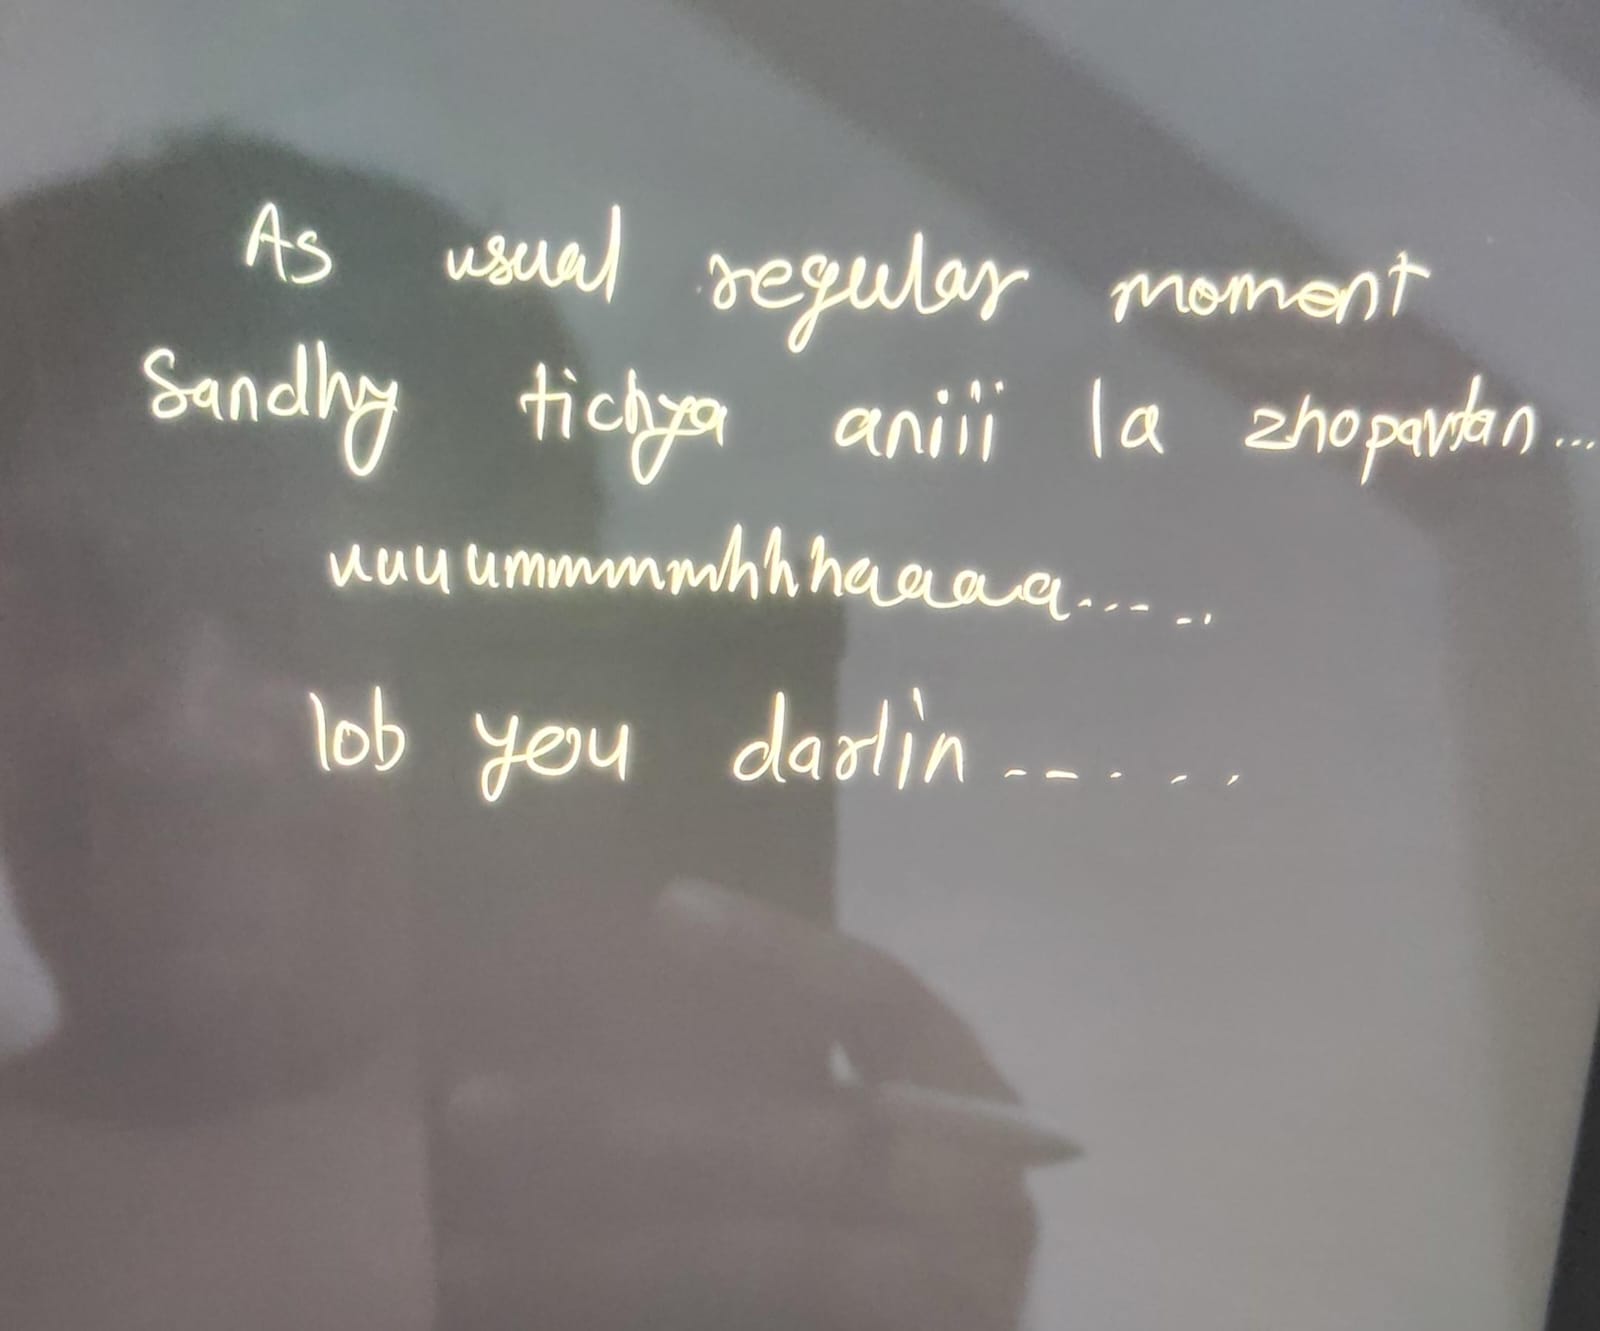 As usual regular moment
Sandhy tichya aniii la zhopavtan...
uuuummmmmhhhhaaaaa......
lob you darlin......